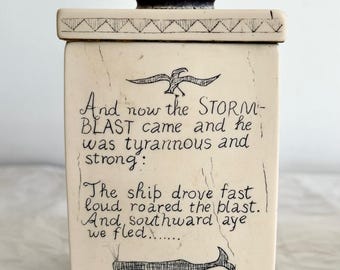 And now the STORM-
BLAST came and he
was tyrannous and
strong:
The ship drove fast
loud roared the blast.
And southward aye
we fled.......